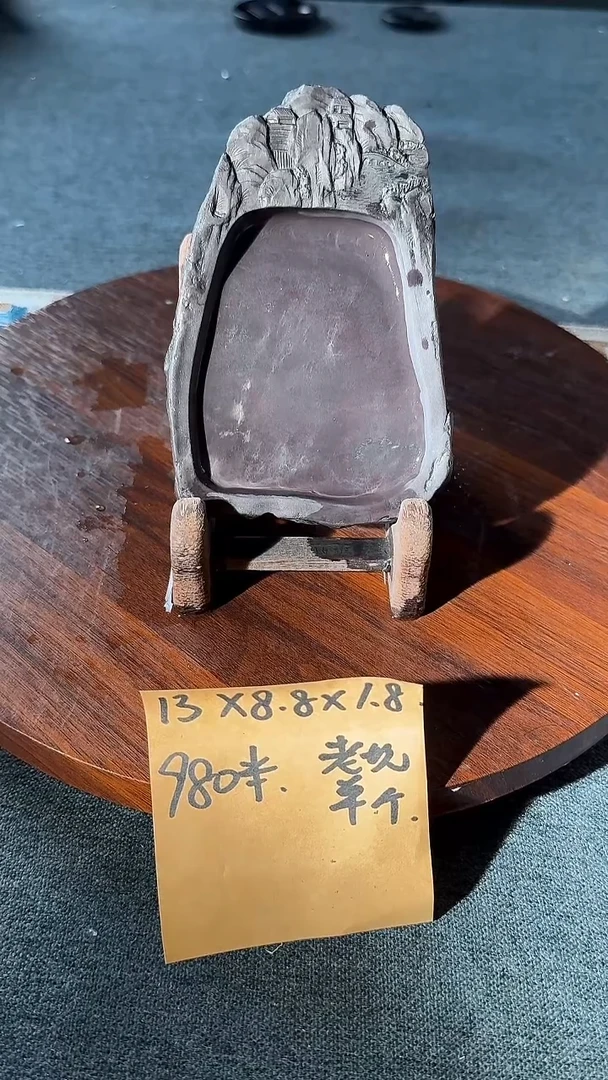 13 × 8.8 × 1.8
980米.
老坑
单个.